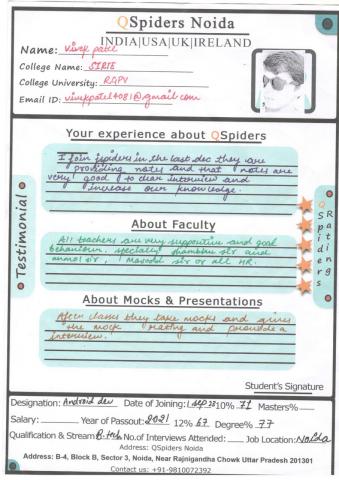 QSpiders Noida
INDIA|USA|UK|IRELAND
Name: Vivek patel
College Name: SIRTE
College University: RGPV
Email ID: vivekpatel4081@gmail.com
Your experience about QSpiders
I join jspiders in the last dec they are
providing notes and that notes are
very good to clear interview and
increase our knowledge.
Testimonial
QSpiders
Rating
About Faculty
All teachers are very supportive and good
behaviour, specially shambhu sir and
anmol sir, Masood sir or all HR.
About Mocks & Presentations
After classes they take mocks and gives
the mock rating and provide a
interview.
Student's Signature
Designation: Android dev Date of Joining: 1 sep 23 10% 71 Masters%
Salary: Year of Passout: 2021 12% 67 Degree% 77
Qualification & Stream B.tech No.of Interviews Attended: Job Location: Noida
Address: QSpiders Noida
Address: B-4, Block B, Sector 3, Noida, Near Rajnigandha Chowk Uttar Pradesh 201301
Contact us: +91-9810072392